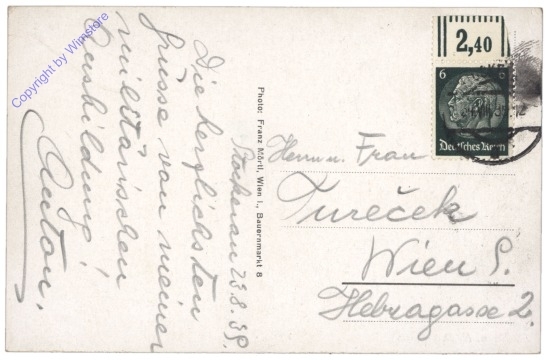 Copyright by Winstore
Stockerau 23.8.39.
Die herzlichsten
Grüsse von meiner
militärischen
Ausbildung!
Anton.
Photo: Franz Mörtl, Wien I., Bauernmarkt 8
2,40
6
6
Deutsches Reich
Herrn u. Frau
Tureček
Wien 9.
Hebragasse 2.